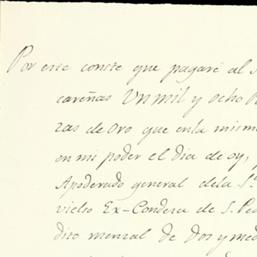 Por este conste que pagaré al S
careñas Un mil y ocho
zas de oro que en la misma
en mi poder el dia de oy,
Apoderado general dela S.ª
vielso Ex-Condesa de S. Ped
dito menzal de Dos y med